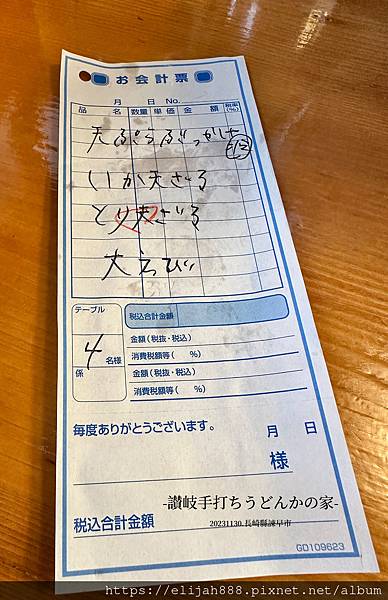 お会計票
月 日 No.
品 名 数量 単価 金 額 税率(%)
天ぷらぶっかけ
いか天ざる
とり天ざる
大えび
テーブル
4 名様
係
税込合計金額
金額(税抜・税込)
消費税額等( %)
金額(税抜・税込)
消費税額等( %)
毎度ありがとうございます。
月 日
様
-讃岐手打ちうどんかの家-
税込合計金額
20231130.長崎縣諫早市
GD109623
https://elijah888.pixnet.net/album